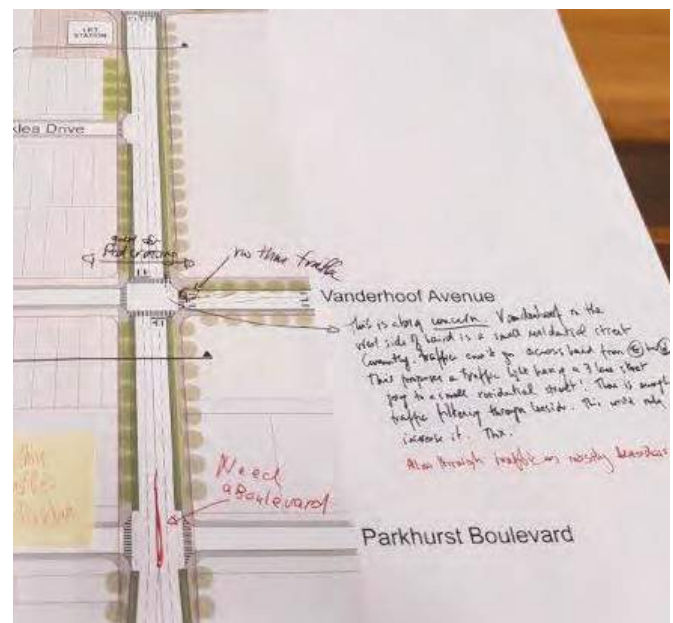 LRT
STATION
klea Drive
good for
Pedestrians
no thru traffic
Vanderhoof Avenue
This is a big concern Vanderhoof on the
west side of Laird is a small residential street
Currently traffic can't go across Laird from E to W
This proposes a traffic light having a 3 lane street
going to a small residential street! There is enough
traffic filtering through Leaside. This would only
increase it. Thx.
Also through traffic on
Need
a Boulevard
Parkhurst Boulevard